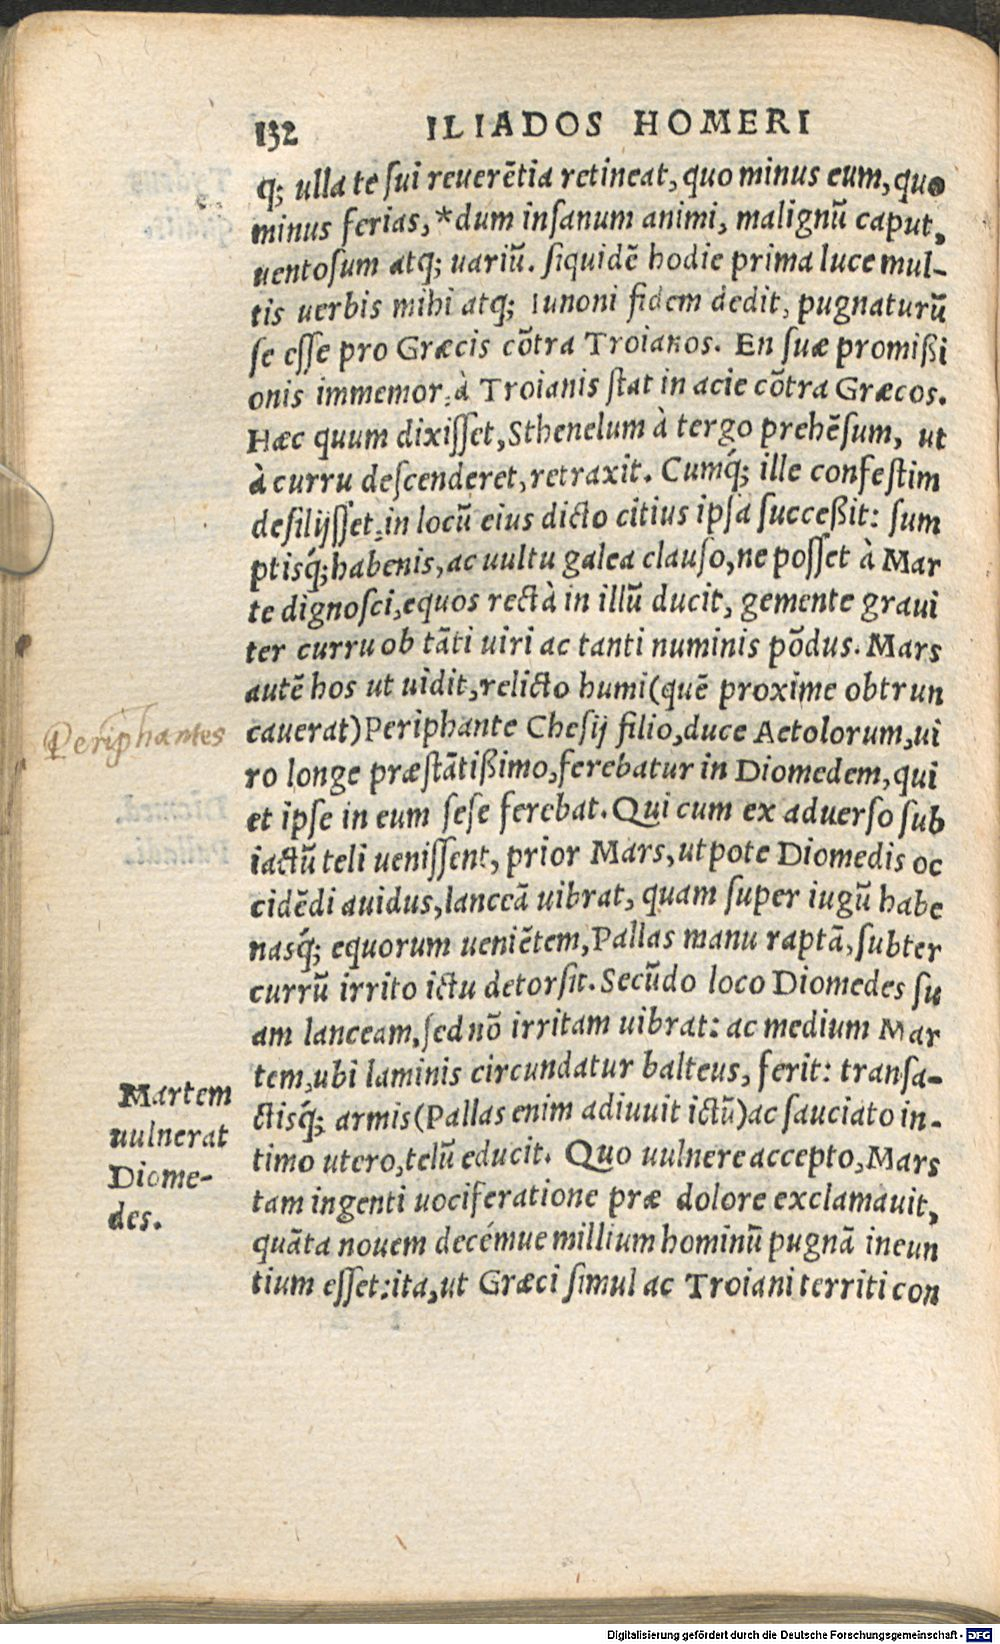 132 ILIADOS HOMERI
q; ulla te ſui reuerẽtia retineat, quo minus eum, quo
minus ferias, *dum inſanum animi, malignũ caput,
uentoſum atq; uariũ. ſiquidẽ hodie prima luce mul-
tis uerbis mihi atq; Iunoni fidem dedit, pugnaturũ
ſe eſſe pro Græcis cõtra Troianos. En ſuæ promißi
onis immemor, à Troianis ſtat in acie cõtra Græcos.
Hæc quum dixiſſet, Sthenelum à tergo prehẽſum, ut
à curru deſcenderet, retraxit. Cumq́; ille confeſtim
deſilijſſet, in locũ eius dicto citius ipſa ſucceßit: ſum
ptisq́; habenis, ac uultu galea clauſo, ne poſſet à Mar
te dignoſci, equos rectà in illũ ducit, gemente graui
ter curru ob tãti uiri ac tanti numinis põdus. Mars
autẽ hos ut uidit, relicto humi (quẽ proxime obtrun
cauerat) Periphante Cheſij filio, duce Aetolorum, ui
ro longe præſtãtißimo, ferebatur in Diomedem, qui
et ipſe in eum ſeſe ferebat. Qui cum ex aduerſo ſub
iactũ teli ueniſſent, prior Mars, utpote Diomedis oc
cidẽdi auidus, lanceã uibrat, quam ſuper iugũ habe
nasq́; equorum ueniẽtem, Pallas manu raptã, ſubter
currũ irrito ictu detorſit. Secũdo loco Diomedes ſu
am lanceam, ſed nõ irritam uibrat: ac medium Mar
tem, ubi laminis circundatur balteus, ferit: tranſa-
ctisq́; armis (Pallas enim adiuuit ictũ) ac ſauciato in-
timo utero, telũ educit. Quo uulnere accepto, Mars
tam ingenti uociferatione præ dolore exclamauit,
quãta nouem decémue millium hominũ pugnã ineun
tium eſſet: ita, ut Græci ſimul ac Troiani territi con
Periphantes
Martem
uulnerat
Diome-
des.
Digitalisierung gefördert durch die Deutsche Forschungsgemeinschaft - DFG